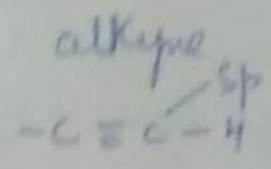 alkyne
sp
-C≡C-H